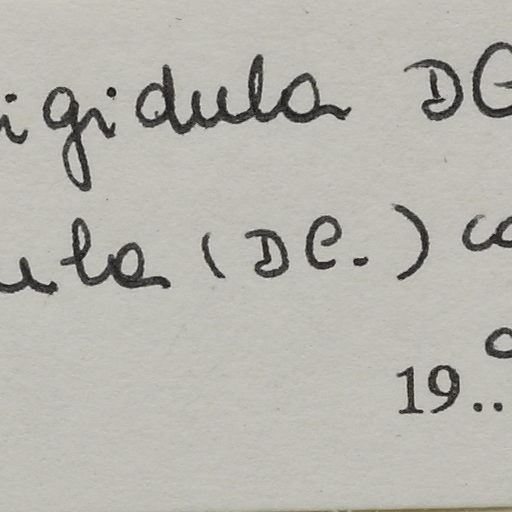 igidula DC
ula (DC.) co
19..